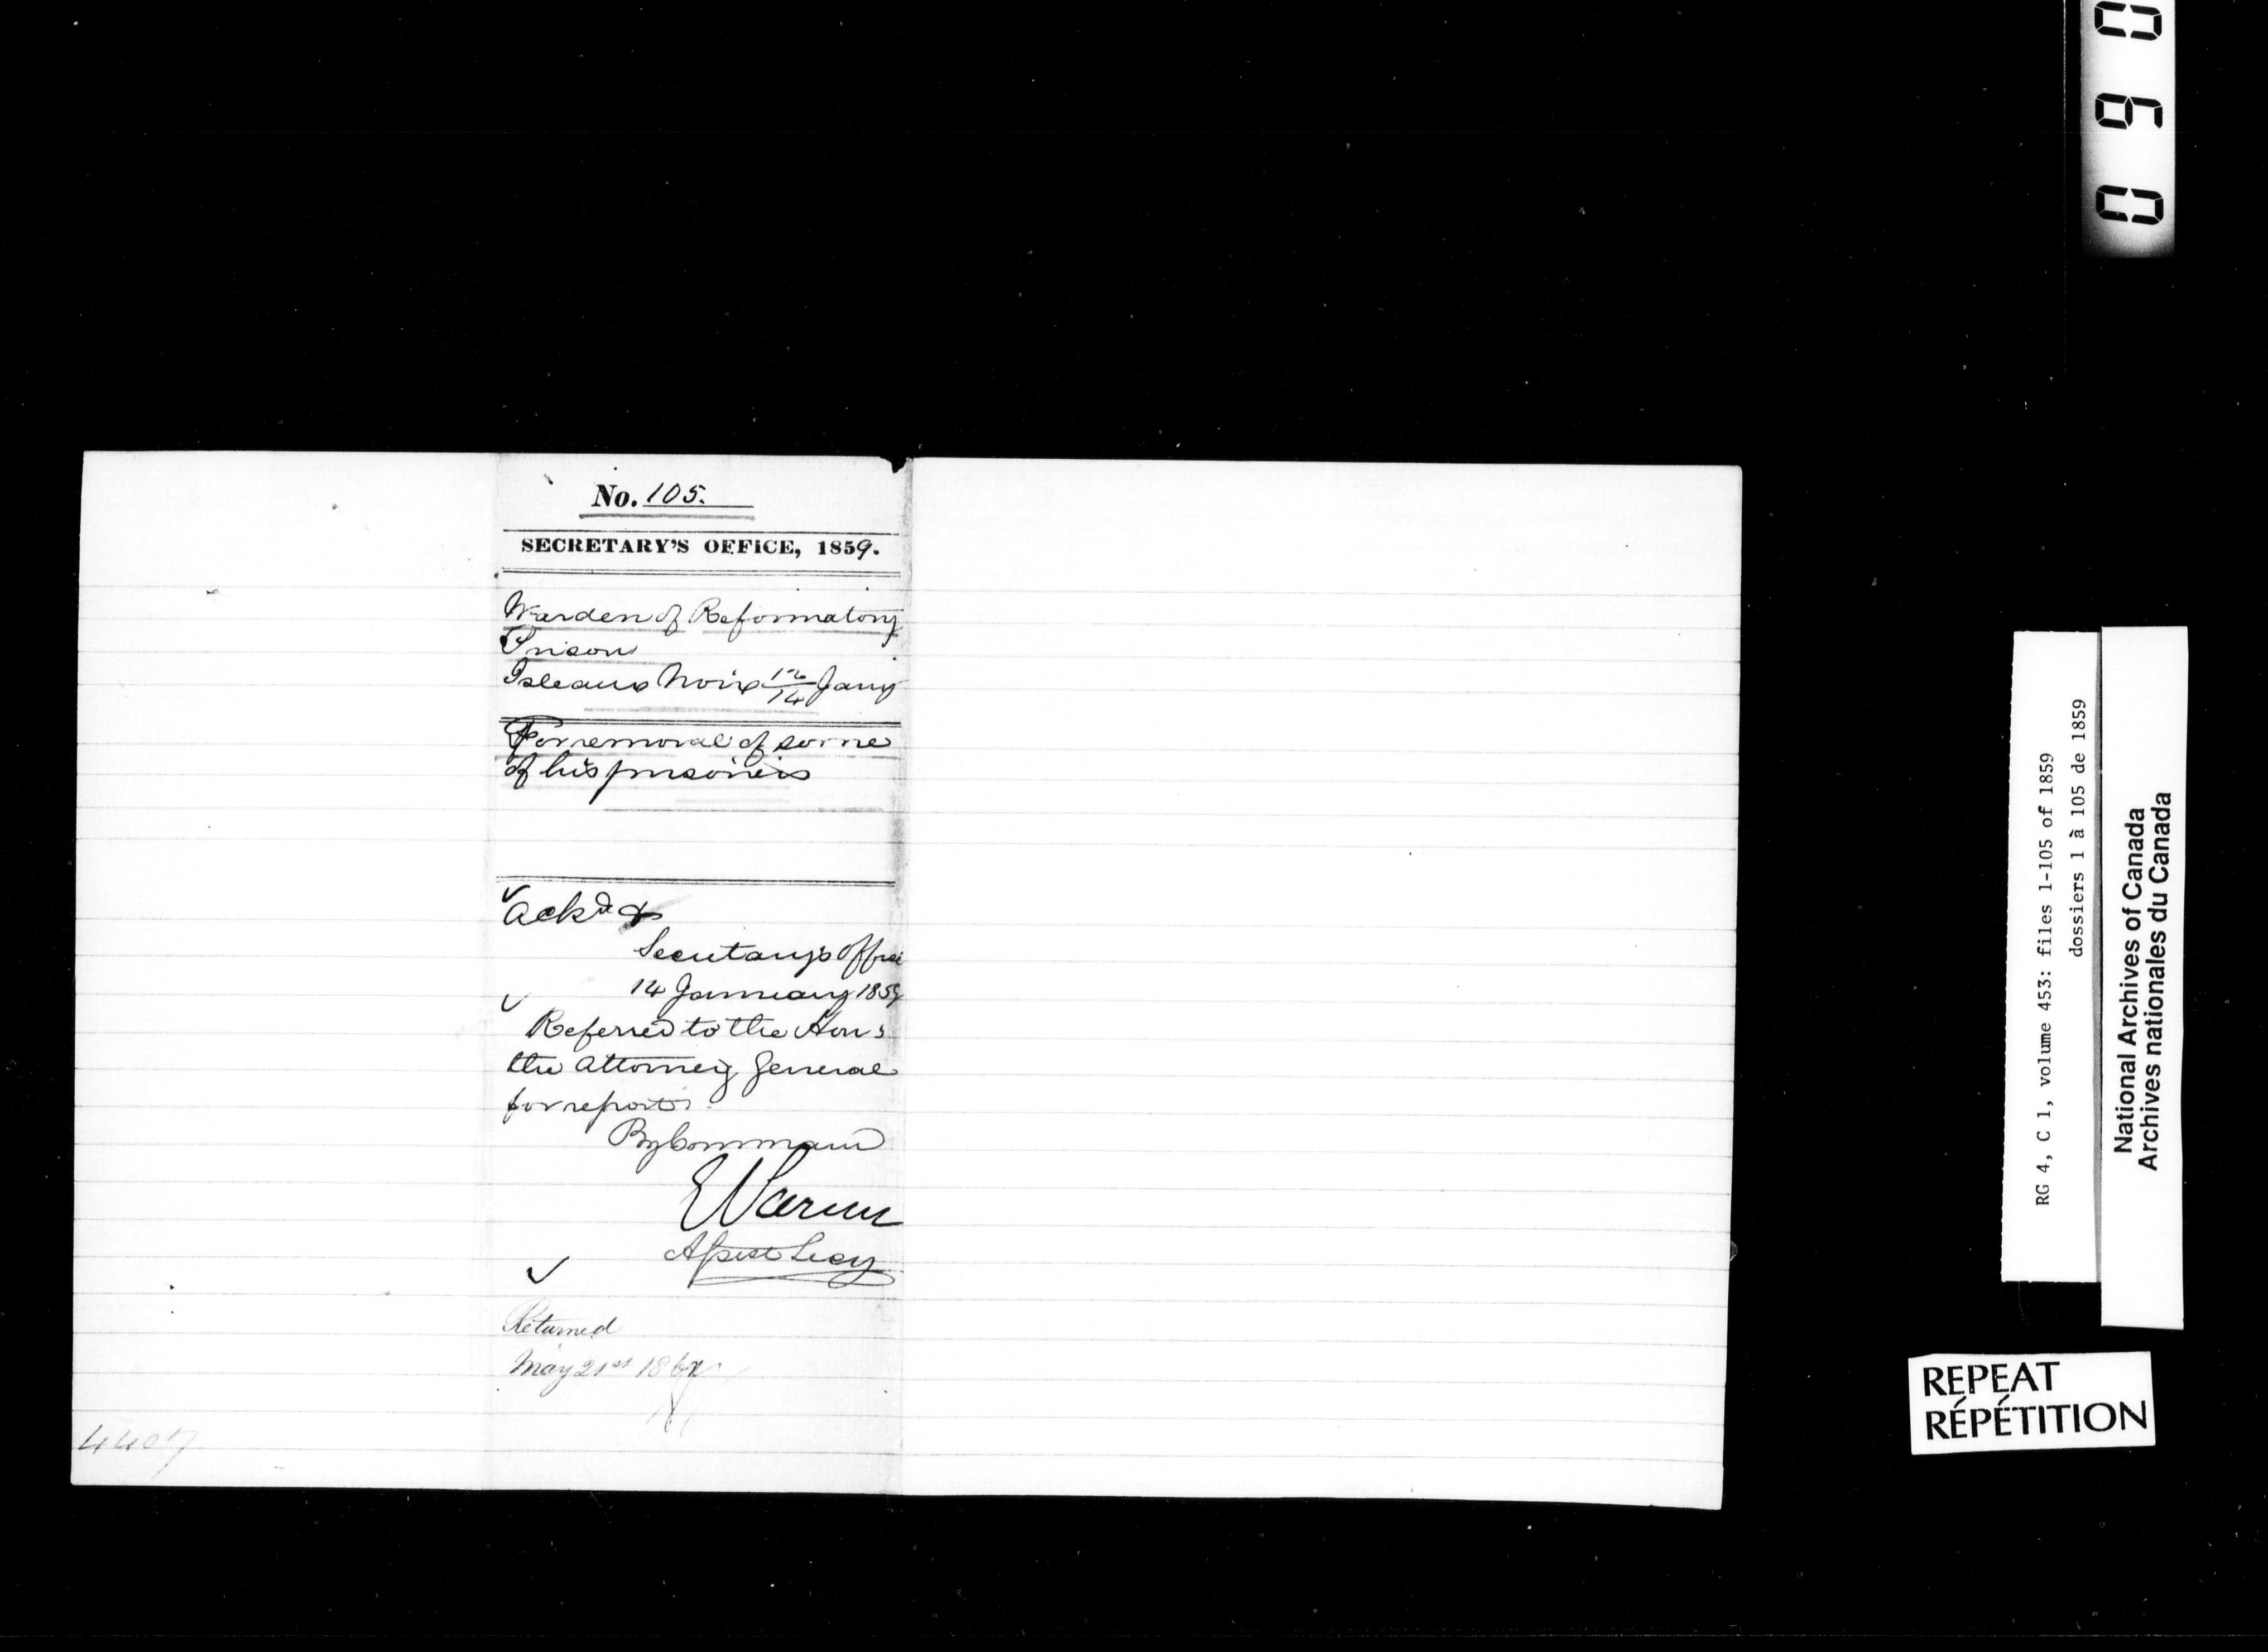 No. 105.
SECRETARY'S OFFICE, 1859.
Warden of Reformatory
Prison
Isle aux Noix 12/14 Jany
For removal of some
of his prisoners
Ackd &
Secretary's Office
14 January 1859
Referred to the Hon
the Attorney General
for report.
By Command
E Parent
Asst Secy
Returned
May 21st
4407
060
RG 4, C 1, volume 453: files 1-105 of 1859
dossiers 1 à 105 de 1859
National Archives of Canada
Archives nationales du Canada
REPEAT
RÉPÉTITION